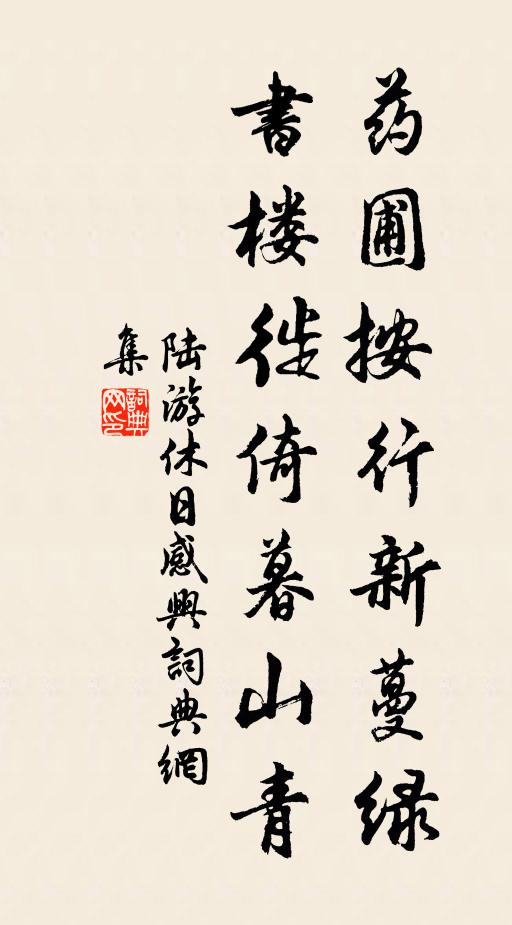 药圃按行新蔓绿
书楼徙倚暮山青
陆游休日感興詞典網
集
詞典网印